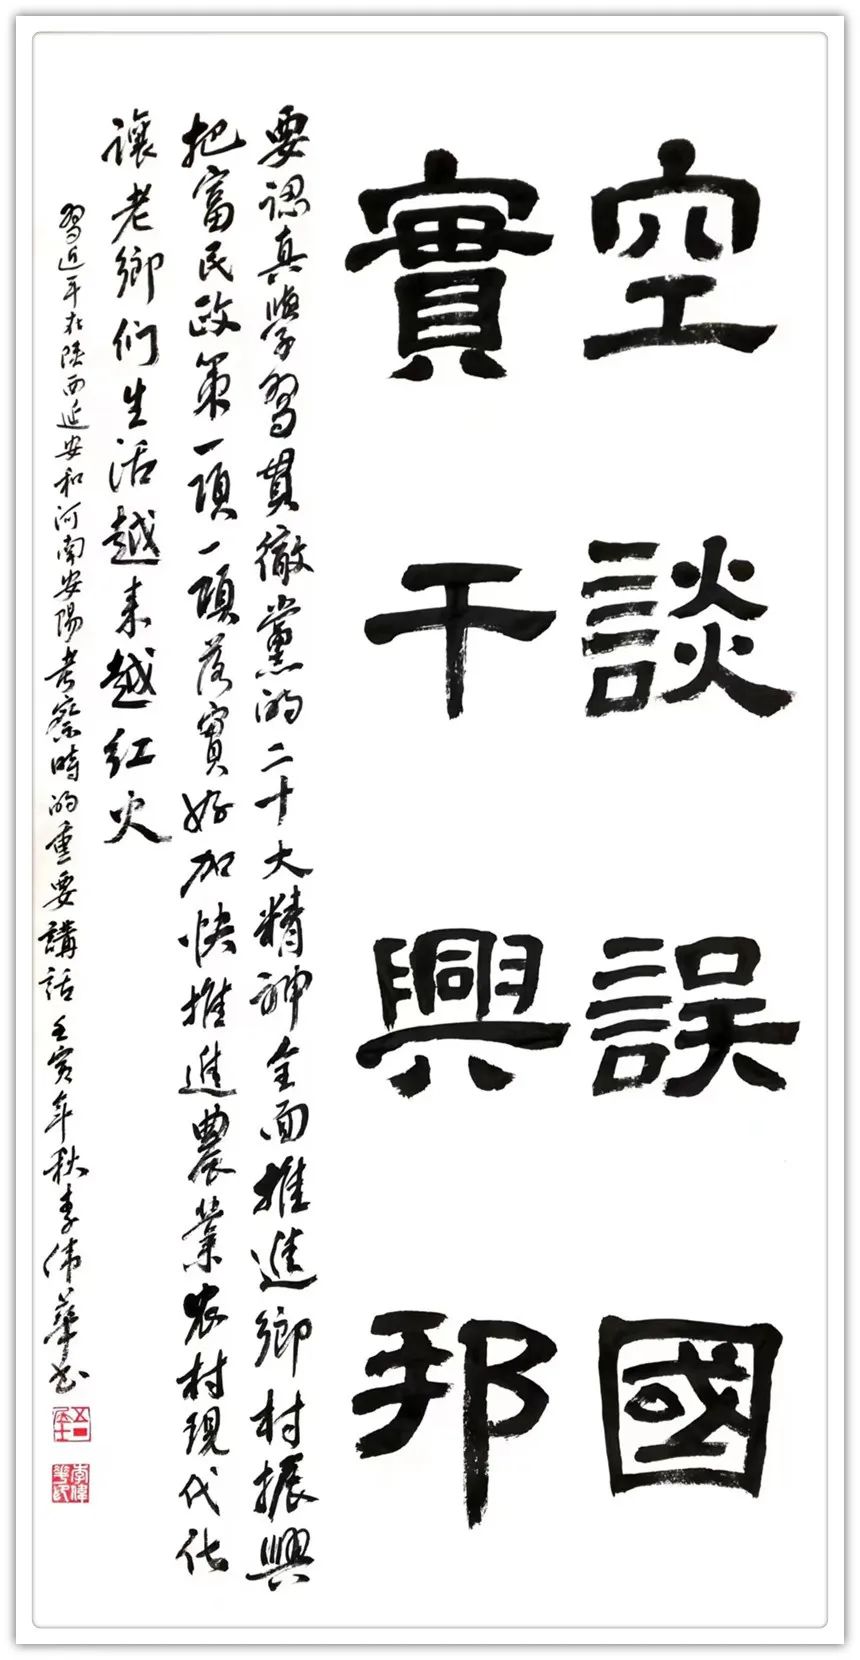 空談誤國
實干興邦
要認真學習貫徹黨的二十大精神全面推進鄉村振興
把富民政策一項一項落實好加快推進農業农村現代化
讓老鄉们生活越来越红火
習近平在陕西延安和河南安陽考察時的重要講話壬寅年秋李偉華书
李偉華印